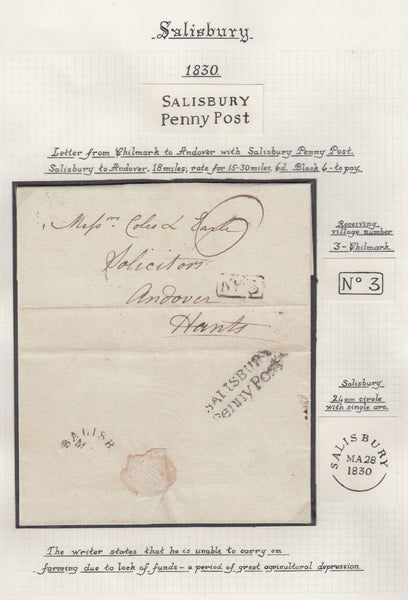 Salisbury
1830
SALISBURY
Penny Post
Letter from Chilmark to Andover with Salisbury Penny Post.
Salisbury to Andover, 18 miles, rate for 15-30 miles, 6d. Black 6 - to pay.
Messrs. Coles &
Solicitors
Andover
Hants
6
No 3
SALISBURY
Penny Post
SALISB
Receiving
village number
3 - Chilmark.
No 3
Salisbury
24mm circle
with single arc.
SALISBURY
MA 28
1830
The writer states that he is unable to carry on
farming due to lack of funds - a period of great agricultural depression